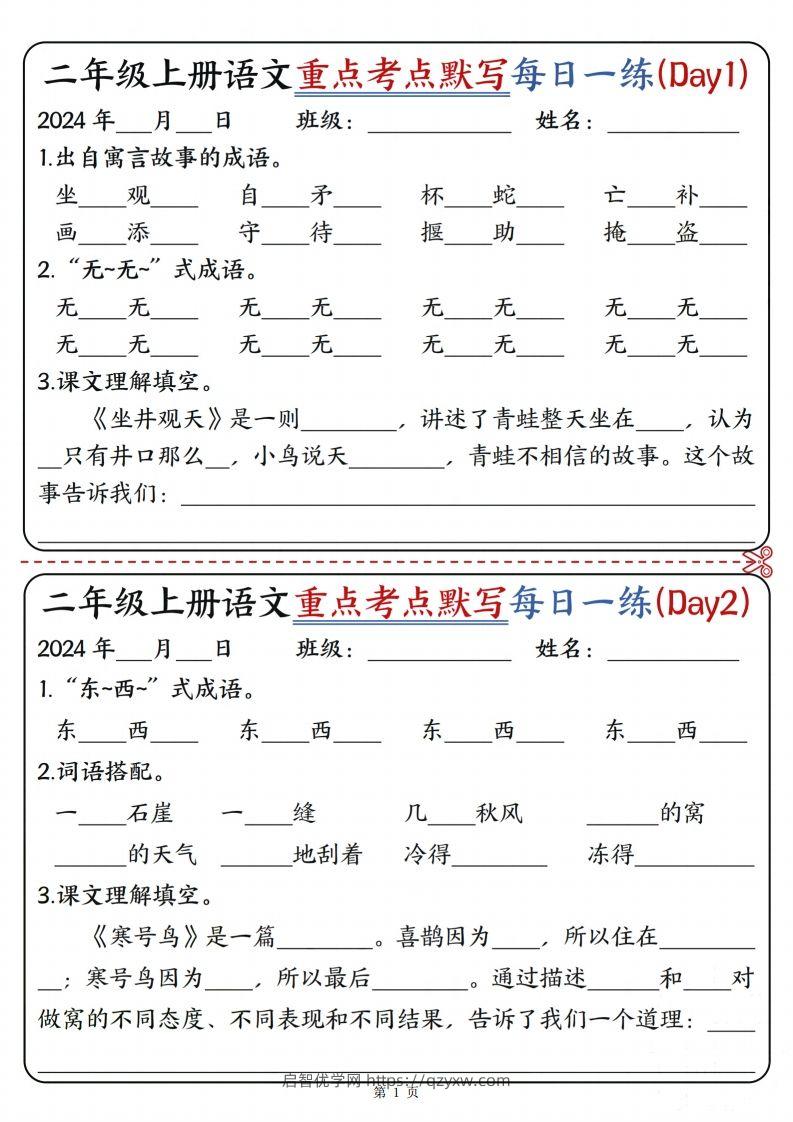 二年级上册语文重点考点默写每日一练(Day1)
2024 年___月___日 班级：____________ 姓名：___________
1.出自寓言故事的成语。
坐____观____ 自____矛____ 杯____蛇____ 亡____补____
画____添____ 守____待____ 揠____助____ 掩____盗____
2.“无~无~”式成语。
无____无____ 无____无____ 无____无____ 无____无____
无____无____ 无____无____ 无____无____ 无____无____
3.课文理解填空。
《坐井观天》是一则________，讲述了青蛙整天坐在____，认为
__只有井口那么__，小鸟说天________，青蛙不相信的故事。这个故
事告诉我们：________________________________________________
____________________________________________________________
二年级上册语文重点考点默写每日一练(Day2)
2024 年___月___日 班级：____________ 姓名：___________
1.“东~西~”式成语。
东____西____ 东____西____ 东____西____ 东____西____
2.词语搭配。
一____石崖 一____缝 几____秋风 ______的窝
______的天气 ______地刮着 冷得________ 冻得__________
3.课文理解填空。
《寒号鸟》是一篇________。喜鹊因为____，所以住在________
__；寒号鸟因为____，所以最后________。通过描述______和____对
做窝的不同态度、不同表现和不同结果，告诉了我们一个道理：____
____________________________________________________________
启智优学网 https://qzyxw.com
第 1 页